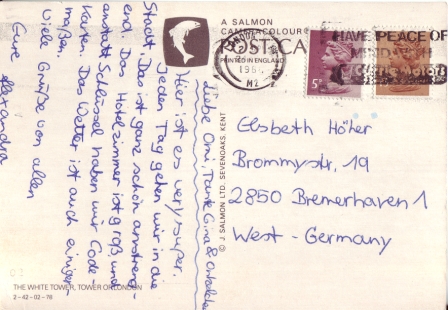 A SALMON
CAMERACOLOUR
POST CARD
PRINTED IN ENGLAND
HAVE PEACE OF
5P
M2
Liebe Omi, Tante Gina &
Hier ist es very super.
Jeden Tag gehen wir in die
Stadt. Das ist ganz schön anstreng-
end. Das Hotelzimmer ist groß und
anstatt Schlüssel haben wir Code-
Karten. Das Wetter ist auch einiger-
maßen.
Viele Grüße von allen
Eure Alexandra
Elsbeth Höter
Brommystr. 19
2850 Bremerhaven 1
West - Germany
© J. SALMON LTD. SEVENOAKS, KENT
THE WHITE TOWER, TOWER OF LONDON
2-42-02-76